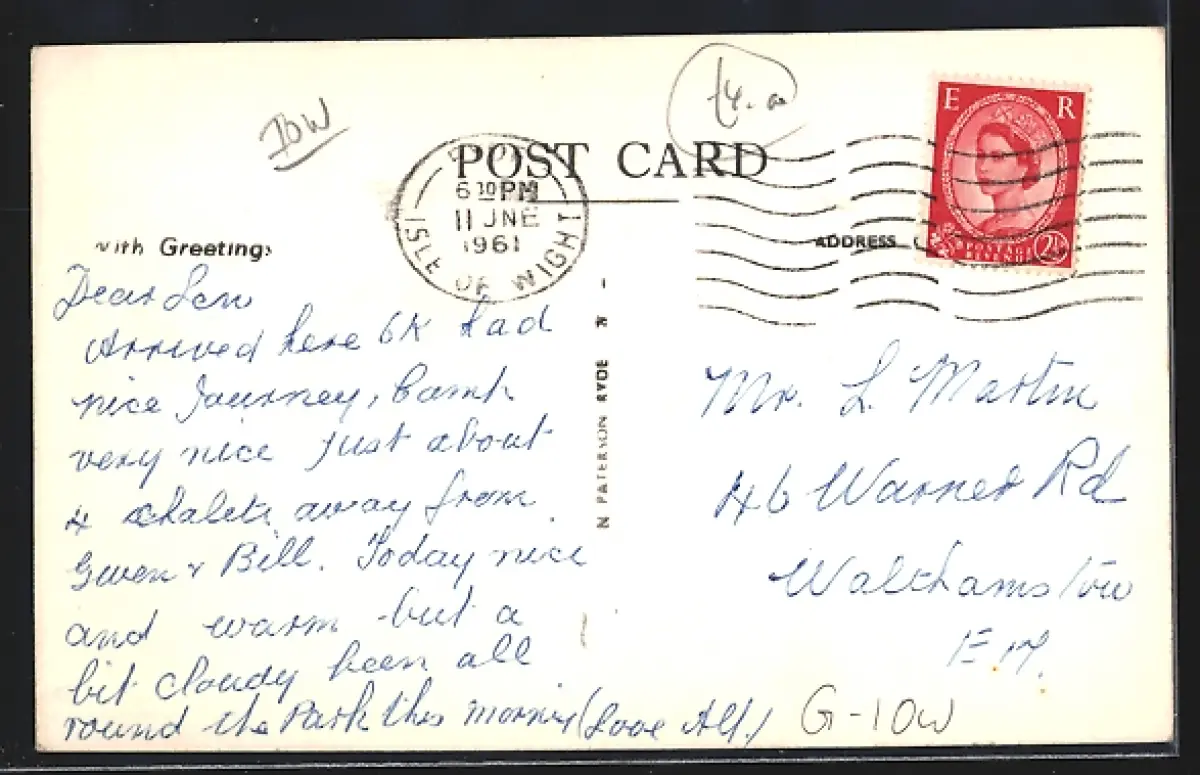 IOW
14.00
POST CARD
6 10 PM
11 JNE
1961
ISLE OF WIGHT
E R
POSTAGE
REVENUE
2½
with Greetings
ADDRESS
Dear Len
Arrived here OK had
nice Journey, Camp
very nice just about
4 chalets away from
Gwen & Bill. Today nice
and warm but a
bit cloudy been all
round the Park this morning (Love Alf.)
N PATERSON RYDE
Mr. L. Martin
46 Warner Rd
Walthamstow
E 17.
G-IOW